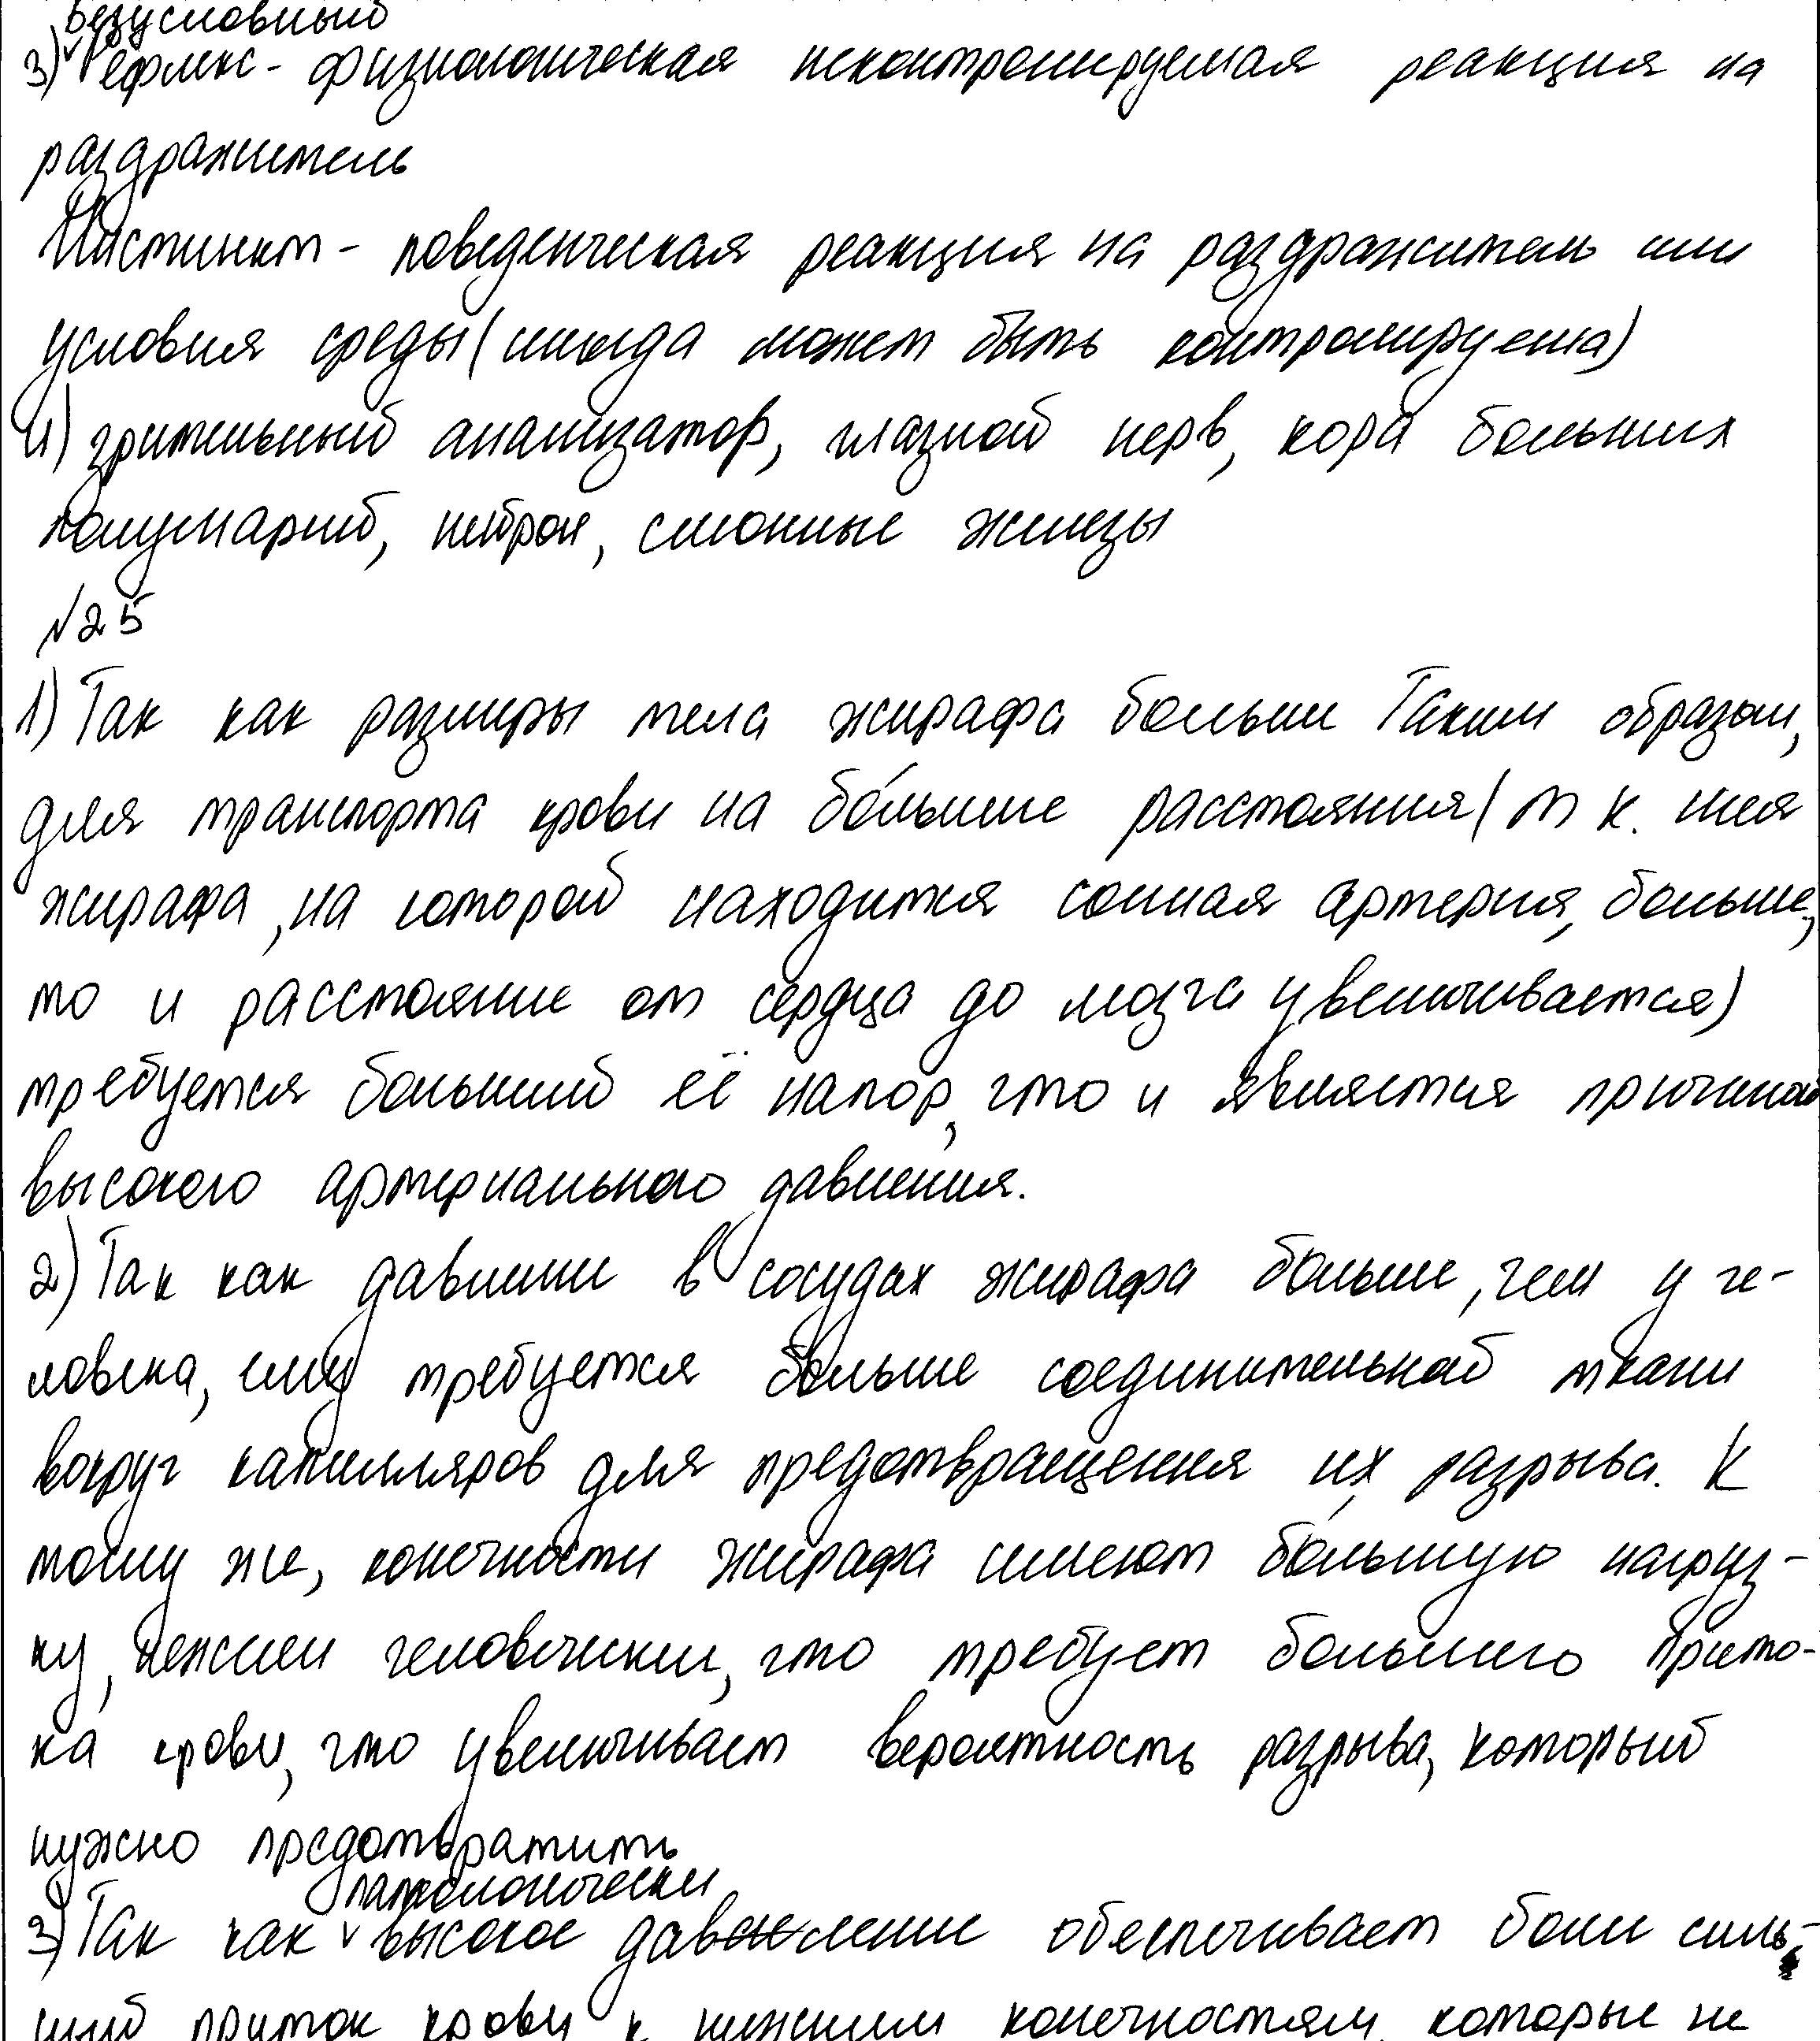 безусловный
3) Рефлекс - физиологическая неконтролируемая реакция на
раздражитель
Инстинкт - поведенческая реакция на раздражитель или
условия среды (иногда может быть контролируема)
4) зрительный анализатор, глазной нерв, кора больших
полушарий, нейрон, слюнные железы
№25
1) Так как размеры тела жирафа больше Таким образом,
для транспорта крови на бо́льшие расстояния (т к. шея
жирафа, на которой находится сонная артерия, больше,
то и расстояние от сердца до мозга увеличивается)
требуется больший её напор, что и является причиной
высокого артериального давления.
2) Так как давление в сосудах жирафа больше, чем у че-
ловека, ему требуется больше соединительной ткани
вокруг капилляров для предотвращения их разрыва. К
тому же, конечности жирафа имеют бо́льшую нагруз-
ку, нежели человеческие, что требует большего прито-
ка крови, что увеличивает вероятность разрыва, который
нужно предотвратить
патологически
3) Так как высокое давление обеспечивает более силь-
ный приток крови к нижним конечностям, которые не